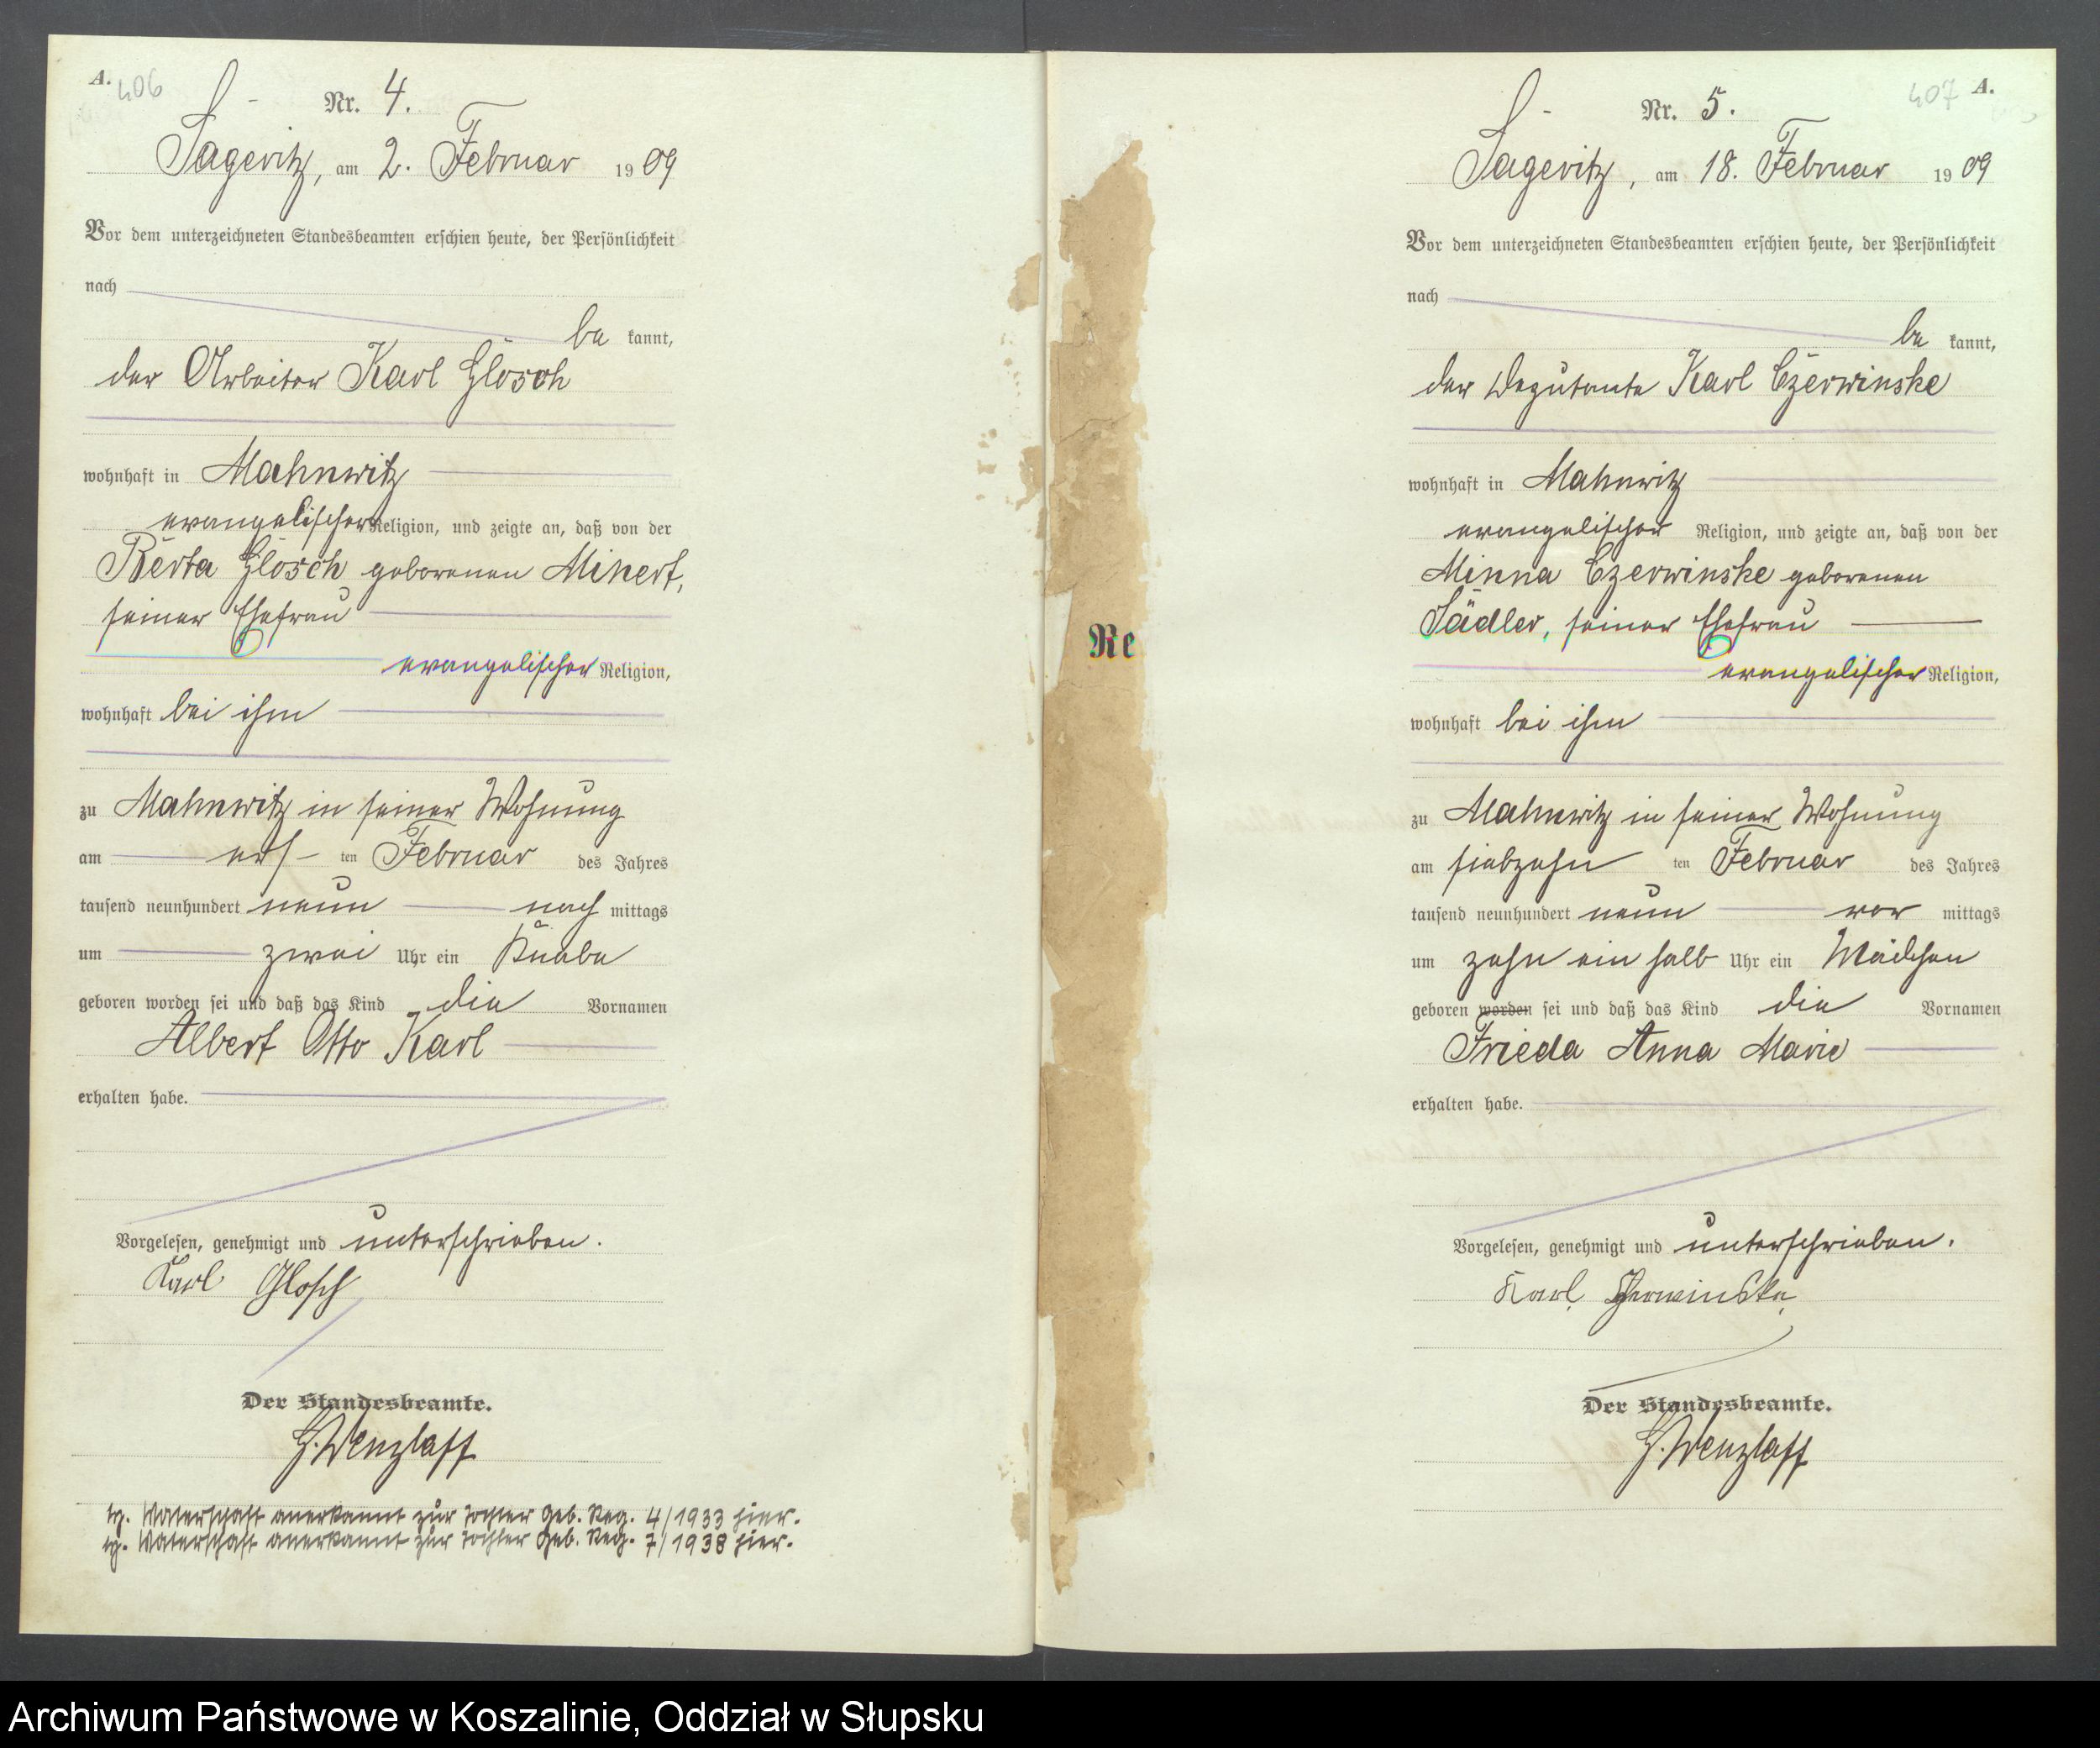 A.
406
Nr. 4.
Sageritz, am 2. Februar 1909
Vor dem unterzeichneten Standesbeamten erschien heute, der Persönlichkeit
nach
be kannt,
der Arbeiter Karl Glosch
wohnhaft in Mahnwitz
evangelischer Religion, und zeigte an, daß von der
Berta Glosch geborenen Minert,
seiner Ehefrau
evangelischer Religion,
wohnhaft bei ihm
zu Mahnwitz in seiner Wohnung
am ers- ten Februar des Jahres
tausend neunhundert neun nach mittags
um zwei Uhr ein Knabe
geboren worden sei und daß das Kind die Vornamen
Albert Otto Karl
erhalten habe.
Vorgelesen, genehmigt und unterschrieben.
Karl Glosch
Der Standesbeamte.
G. Wenzlaff
Vaterschaft anerkannt zur Tochter Geb. Reg. 4/1933 hier.
Vaterschaft anerkannt zur Tochter Geb. Reg. 7/1938 hier.
Re
407
A.
Nr. 5.
Sageritz, am 18. Februar 1909
Vor dem unterzeichneten Standesbeamten erschien heute, der Persönlichkeit
nach
be kannt,
der Deputante Karl Czerwinske
wohnhaft in Mahnwitz
evangelischer Religion, und zeigte an, daß von der
Minna Czerwinske geborenen
Sädler, seiner Ehefrau
evangelischer Religion,
wohnhaft bei ihm
zu Mahnwitz in seiner Wohnung
am siebzehn ten Februar des Jahres
tausend neunhundert neun vor mittags
um zehn ein halb Uhr ein Mädchen
geboren worden sei und daß das Kind die Vornamen
Frieda Anna Marie
erhalten habe.
Vorgelesen, genehmigt und unterschrieben.
Karl Czerwinske
Der Standesbeamte.
G. Wenzlaff
Archiwum Państwowe w Koszalinie, Oddział w Słupsku